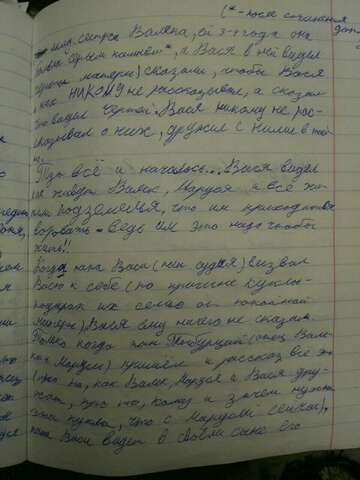 (*-после сочинения
ила сестра Валека, ей 3-4 года она
"серым камнем"*, а Вася в ней видел
сказали, чтобы Вася
о них НИКОМУ не рассказывал, а сказал
что видел чертей. Вася никому не рас-
сказывал о них, дружил с ними в тай-
не.
Тут всё и началось... Вася видел
как живут Валек, Маруся и всё жи-
подземелья, что им приходится
воровать - ведь им это надо чтобы
жить!!
Когда папа Васи (пан судья) вызвал
Васю к себе (по причине куклы-
подарка их семье от покойной
матери) Вася ему ничего не сказал.
Только когда пан Тыбурций (отец Вале-
ка и Маруси) пришёл и рассказ всё это
(про то, как Валек, Маруся и Вася дру-
жат, про то, кому и зачем нужна
была кукла, что с Марусей сейчас),
папа Васи видет в своём сыне его